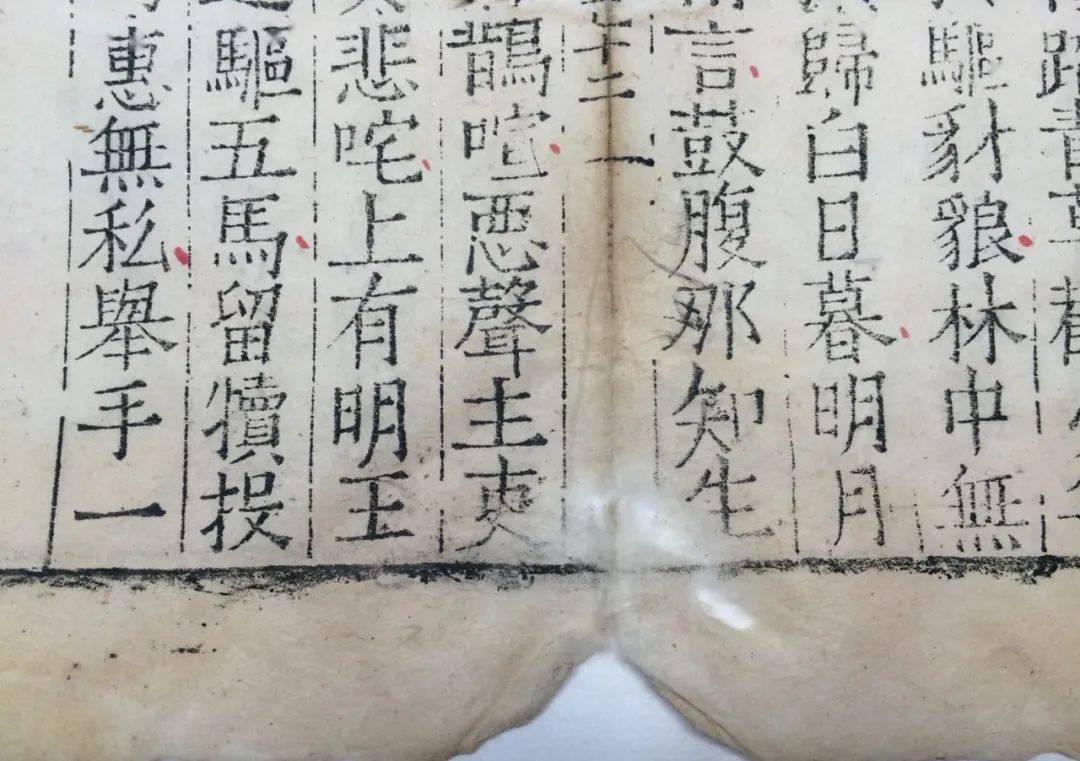 青草
驅豺狼林中無
歸白日暮明月
言鼓腹那知生
十三一
鵲喧悪聲主吏
悲咤上有明王
驅五馬留犢投
惠無私舉手一